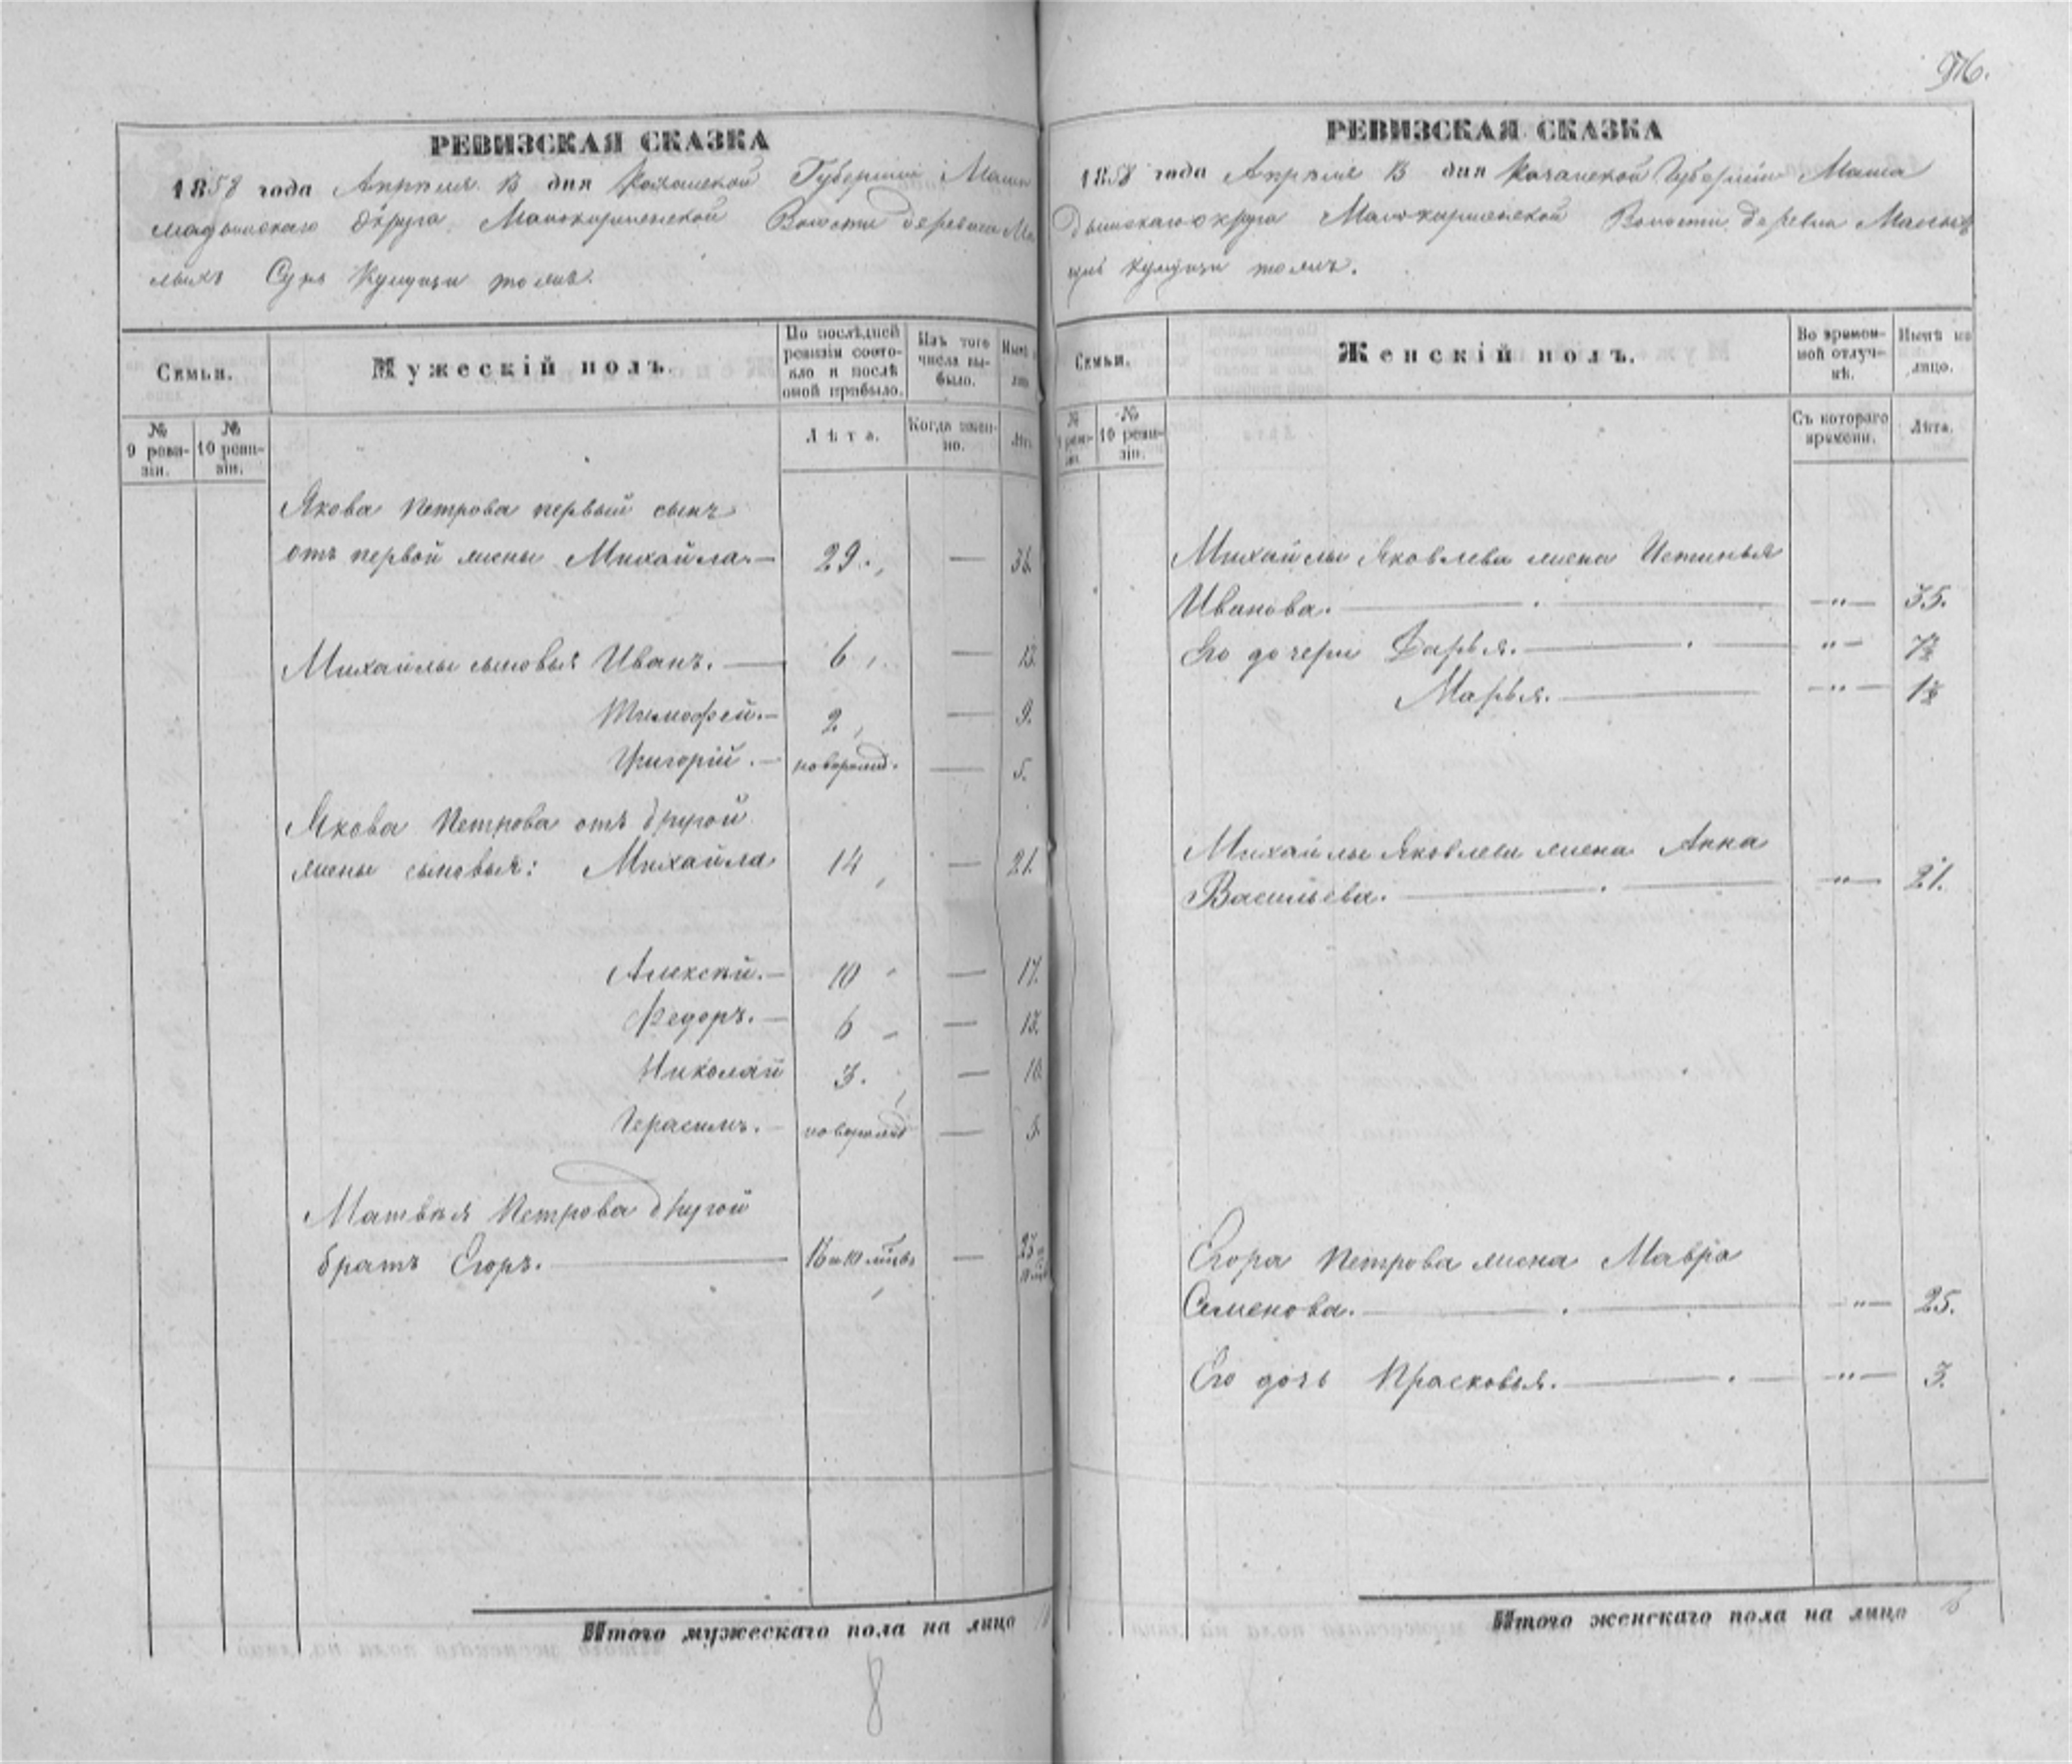 976.
РЕВИЗСКАЯ СКАЗКА
1858 года Апрѣля 13 дня Казанской Губерніи Мама
мадышскаго Округа Малокирменской Волости деревни Ма
лыхъ толмъ.
Семьи.
Мужескій полъ.
По послѣдней ревизіи состояло и послѣ оной прибыло.
Изъ того числа выбыло.
Нынѣ на лицо
№ 9 ревизіи.
№ 10 ревизіи.
Лѣта.
Когда именно.
Лѣта
Якова Петрова первый сынъ
отъ первой жены Михайла.— 29. — 36.
Михайлы сыновья Иванъ. — 6 — 13.
Тимофей.— 2 — 9.
Григорій.— новорожд. — 5.
Якова Петрова отъ другой
жены сыновья: Михайла 14 — 21.
Алексѣй.— 10 — 17.
Федоръ.— 6 — 13.
Николай 3. — 10.
Герасимъ.— новорожд — 5.
Матвѣя Петрова другой
братъ Егоръ. —
Итого мужескаго пола на лицо
8
РЕВИЗСКАЯ СКАЗКА
1858 года Апрѣля 13 дня Казанской Губерніи Мама
дышскаго округа Малокирменской Волости деревни Малыхъ
толмъ.
Семьи.
Женскій полъ.
Во временной отлучкѣ.
Нынѣ на лицо.
№ 9 ревизіи.
№ 10 ревизіи.
Съ котораго времени.
Лѣта.
Михайлы Яковлева жена Устинья
Иванова. — „ — 35.
Его дочери Дарья. — „ — 7½
Марья. — „ — 1½
Михайлы Яковлева жена Анна
Васильева. — „ — 21.
Егора Петрова жена Мавра
Семенова. — „ — 25.
Его дочь Прасковья. — „ — 3.
Итого женскаго пола на лицо